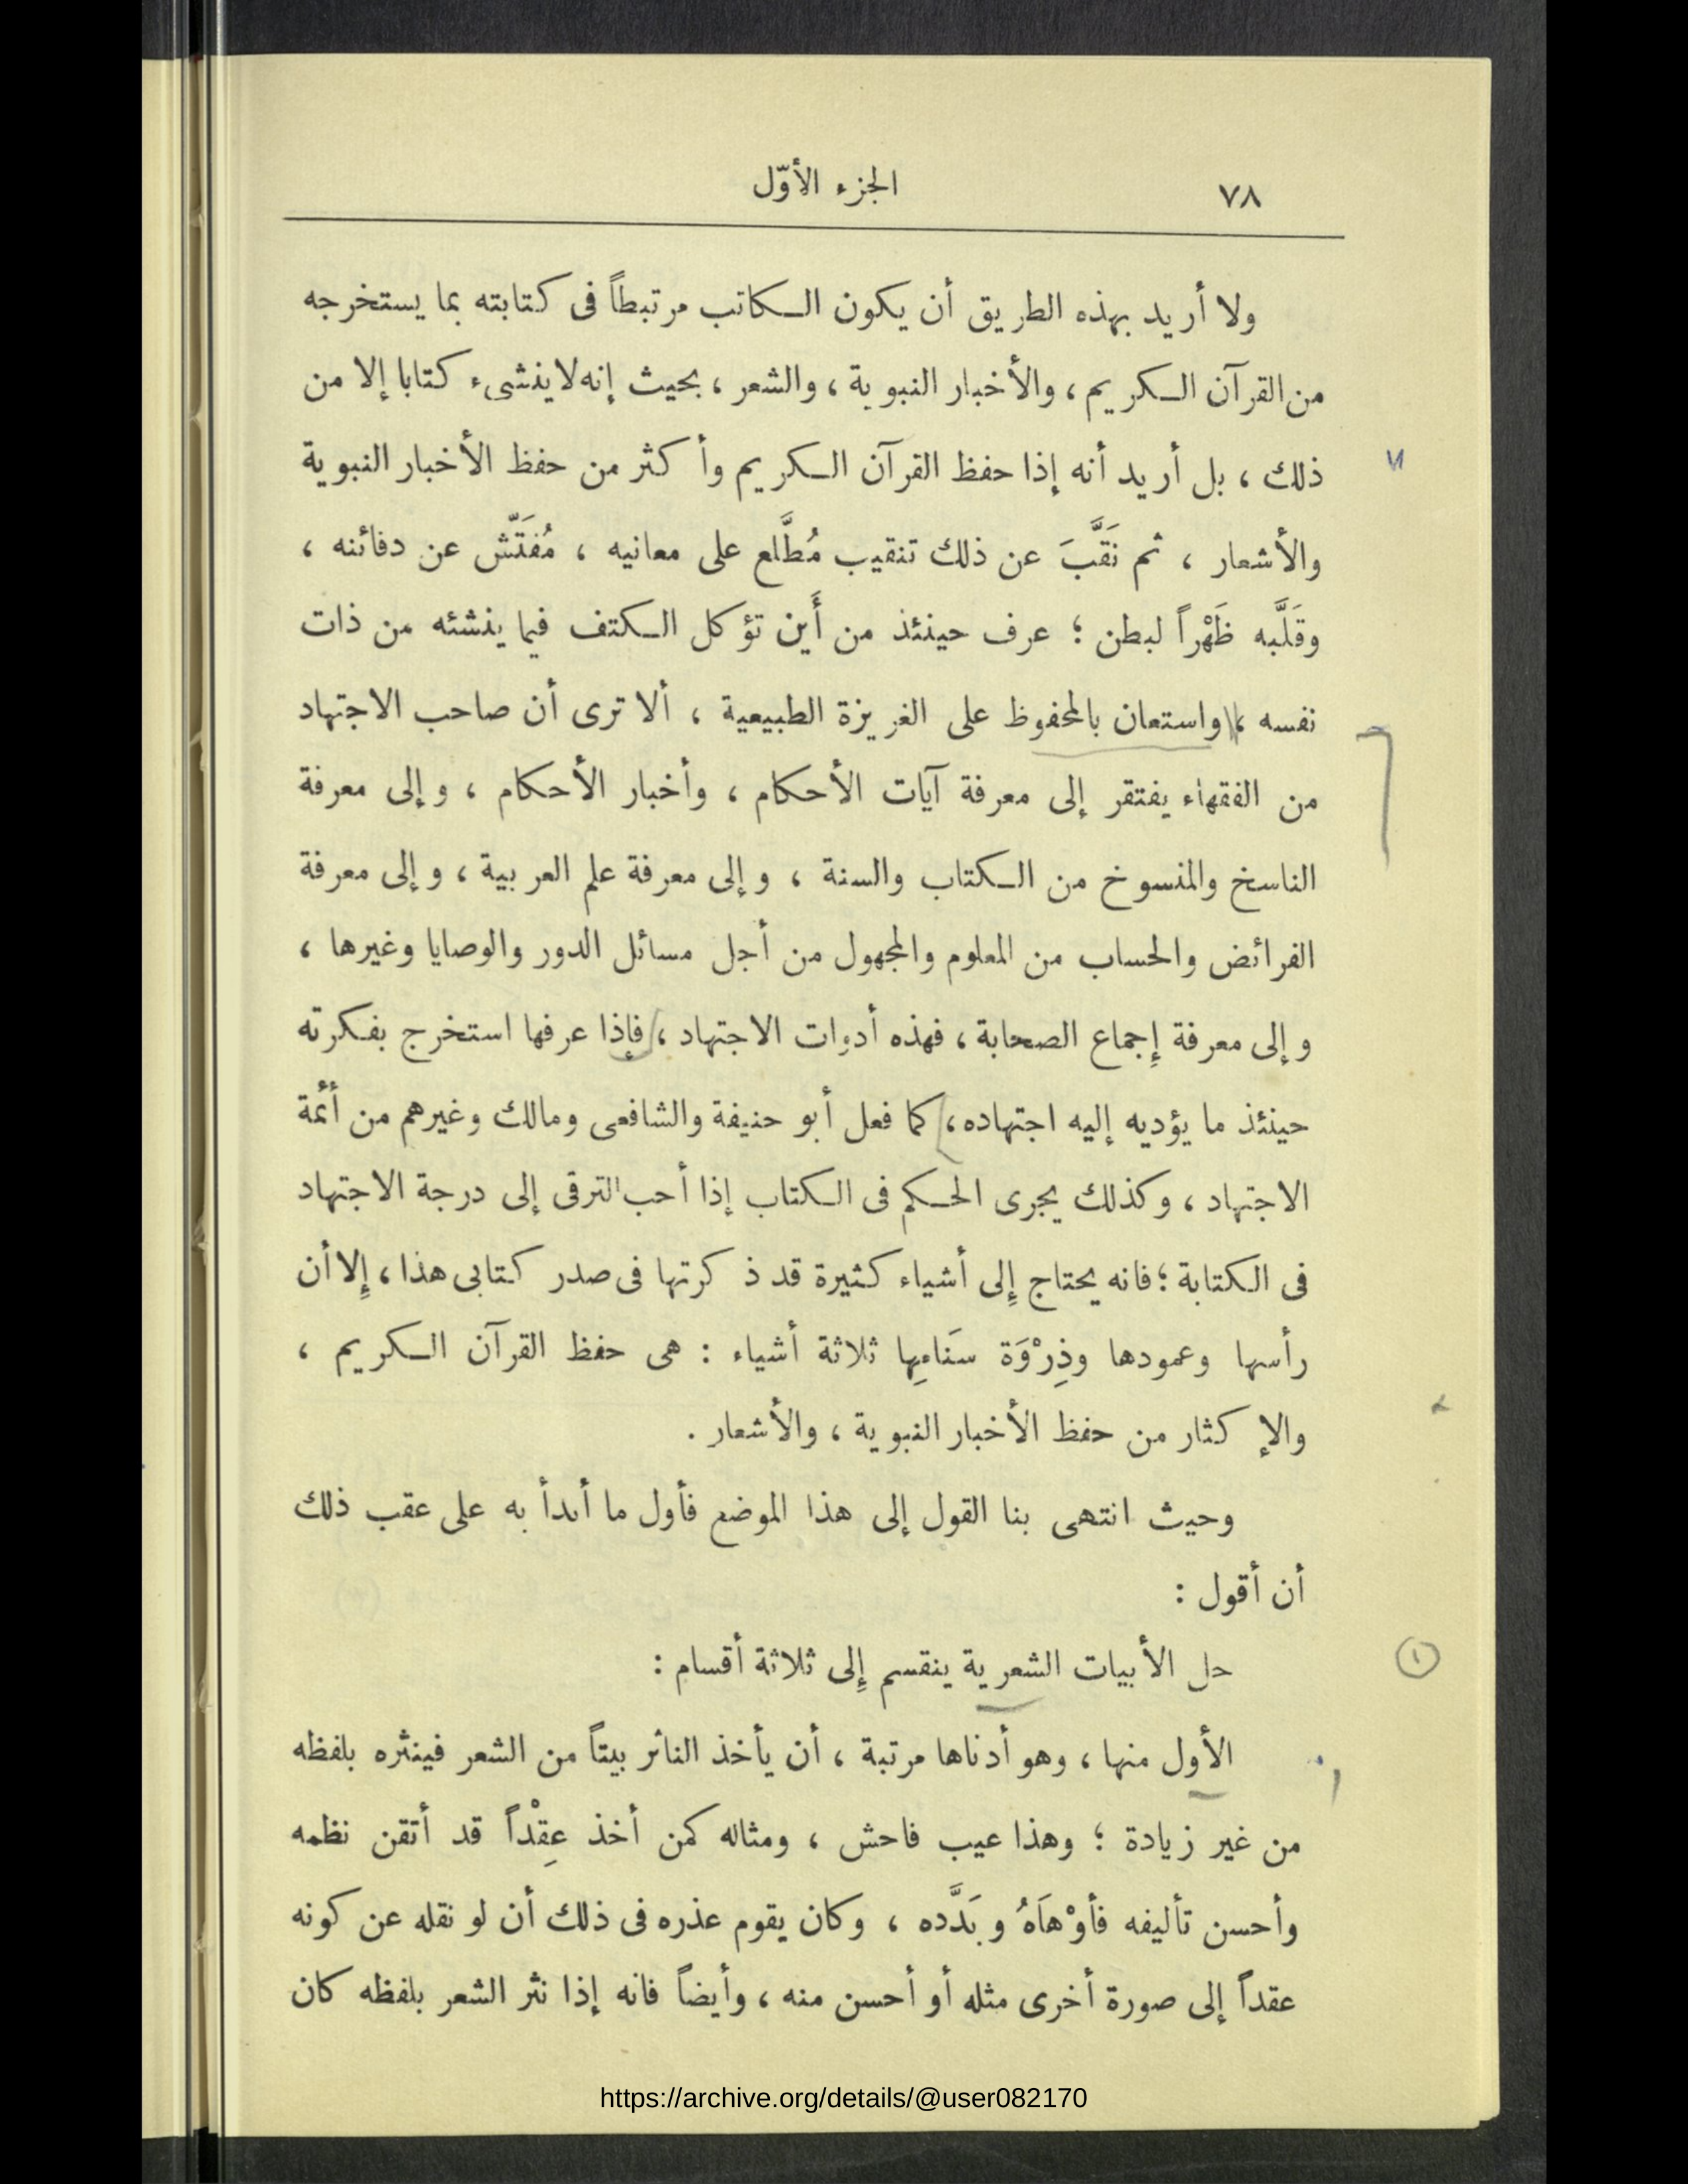 ٧٨
الجزء الأوّل
ولا أريد بهذه الطريق أن يكون الكاتب مرتبطاً فى كتابته بما يستخرجه
من القرآن الكريم ، والأخبار النبوية ، والشعر ، بحيث إنه لا ينشىء كتابا إلا من
ذلك ، بل أريد أنه إذا حفظ القرآن الكريم وأكثر من حفظ الأخبار النبوية
والأشعار ، ثم نَقَّبَ عن ذلك تنقيب مُطَّلع على معانيه ، مُفَتّش عن دفائنه ،
وقَلَّبه ظَهْراً لبطن ؛ عرف حينئذ من أَين تؤكل الكتف فيما ينشئه من ذات
نفسه ، واستعان بالمحفوظ على الغريزة الطبيعية ، ألا ترى أن صاحب الاجتهاد
من الفقهاء يفتقر إلى معرفة آيات الأحكام ، وأخبار الأحكام ، وإلى معرفة
الناسخ والمنسوخ من الكتاب والسنة ، وإلى معرفة علم العربية ، وإلى معرفة
الفرائض والحساب من المعلوم والمجهول من أجل مسائل الدور والوصايا وغيرها ،
وإلى معرفة إِجماع الصحابة ، فهذه أدوات الاجتهاد ، فإذا عرفها استخرج بفكرته
حينئذ ما يؤديه إليه اجتهاده ، كما فعل أبو حنيفة والشافعى ومالك وغيرهم من أئمة
الاجتهاد ، وكذلك يجرى الحكم فى الكتاب إذا أحب الترقى إلى درجة الاجتهاد
فى الكتابة ؛ فانه يحتاج إِلى أشياء كثيرة قد ذكرتها فى صدر كتابى هذا ، إِلا أن
رأسها وعمودها وذِرْوَة سَنَامِها ثلاثة أشياء : هى حفظ القرآن الكريم ،
والإكثار من حفظ الأخبار النبوية ، والأشعار .
وحيث انتهى بنا القول إلى هذا الموضع فأول ما أبدأ به على عقب ذلك
أن أقول :
حل الأبيات الشعرية ينقسم إِلى ثلاثة أقسام :
١
الأول منها ، وهو أدناها مرتبة ، أن يأخذ الناثر بيتاً من الشعر فينثره بلفظه
من غير زيادة ؛ وهذا عيب فاحش ، ومثاله كمن أخذ عِقْداً قد أتقن نظمه
وأحسن تأليفه فأوْهَاهُ وبَدَّده ، وكان يقوم عذره فى ذلك أن لو نقله عن كونه
عقداً إلى صورة أخرى مثله أو أحسن منه ، وأيضاً فانه إذا نثر الشعر بلفظه كان
https://archive.org/details/@user082170